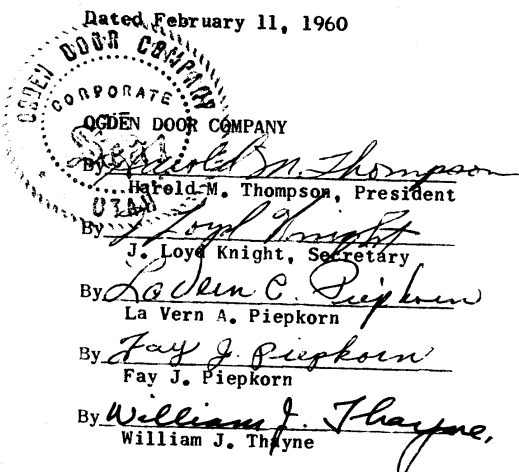 Dated February 11, 1960
OGDEN DOOR COMPANY
CORPORATE
Seal
UTAH
OGDEN DOOR COMPANY
By Harold M. Thompson
Harold M. Thompson, President
By J Loyd Knight
J. Loyd Knight, Secretary
By La Vern C. Piepkorn
La Vern A. Piepkorn
By Fay J. Piepkorn
Fay J. Piepkorn
By William J. Thayne,
William J. Thayne